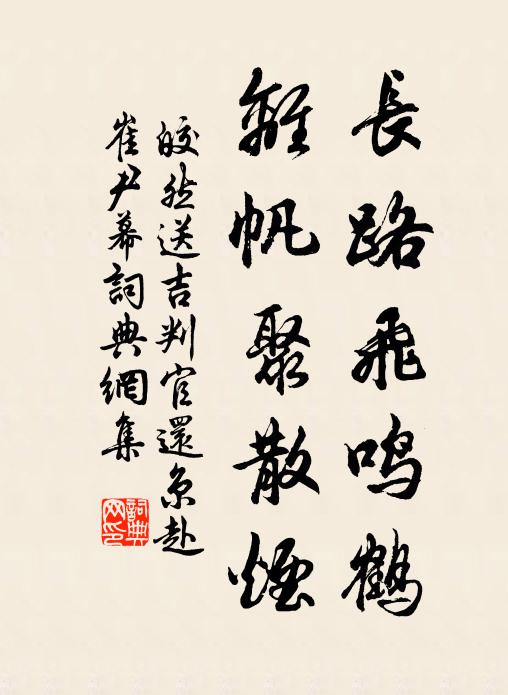 長路飛鳴鶴
離帆聚散煙
皎然送吉判官還京赴
崔尹幕詞典網集
詞典
网印